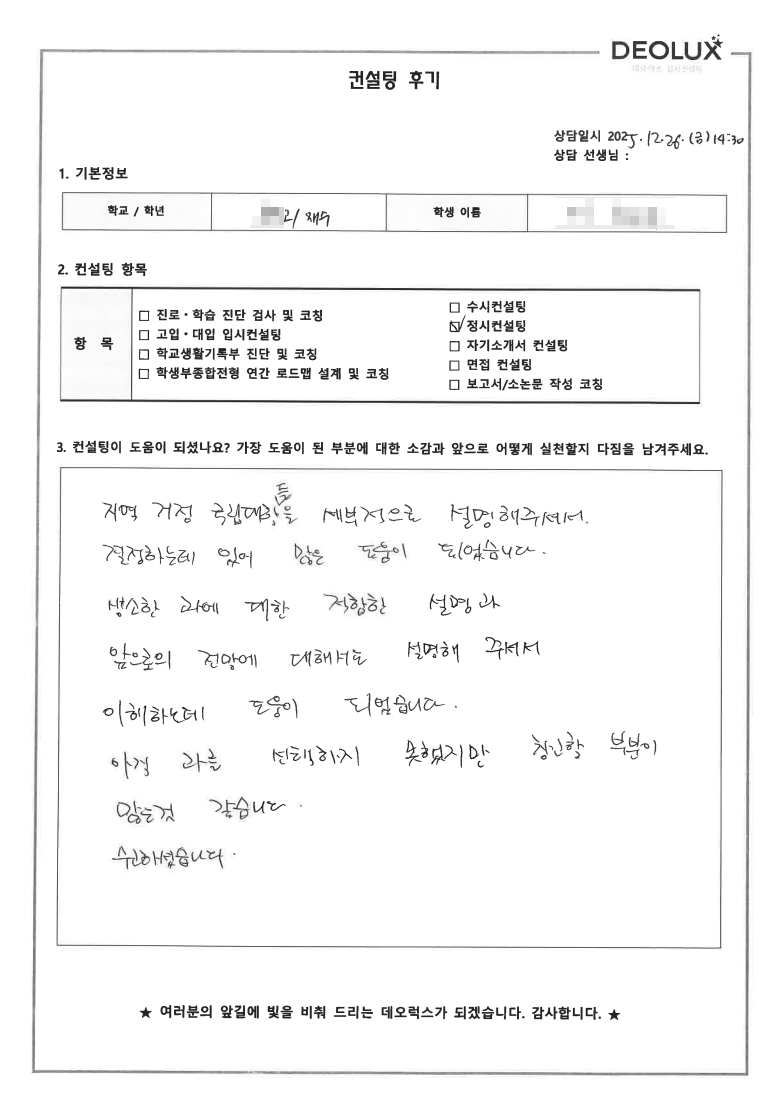 DEOLUX
컨설팅 후기
상담일시 2025.12.26.(금)14:30
상담 선생님 :
1. 기본정보
학교 / 학년 고/ 재수 학생 이름
2. 컨설팅 항목
항 목
□ 진로·학습 진단 검사 및 코칭
□ 고입·대입 입시컨설팅
□ 학교생활기록부 진단 및 코칭
□ 학생부종합전형 연간 로드맵 설계 및 코칭
□ 수시컨설팅
☑ 정시컨설팅
□ 자기소개서 컨설팅
□ 면접 컨설팅
□ 보고서/소논문 작성 코칭
3. 컨설팅이 도움이 되셨나요? 가장 도움이 된 부분에 대한 소감과 앞으로 어떻게 실천할지 다짐을 남겨주세요.
지역 거점 국립대학들을 세부적으로 설명해주셔서.
결정하는데 있어 많은 도움이 되었습니다.
생소한 과에 대한 적합한 설명과
앞으로의 전망에 대해서도 설명해 주셔서
이해하는데 도움이 되었습니다.
아직 과를 선택하지 못했지만 부분이
많은것 같습니다.
수고하셨습니다.
★ 여러분의 앞길에 빛을 비춰 드리는 데오럭스가 되겠습니다. 감사합니다. ★